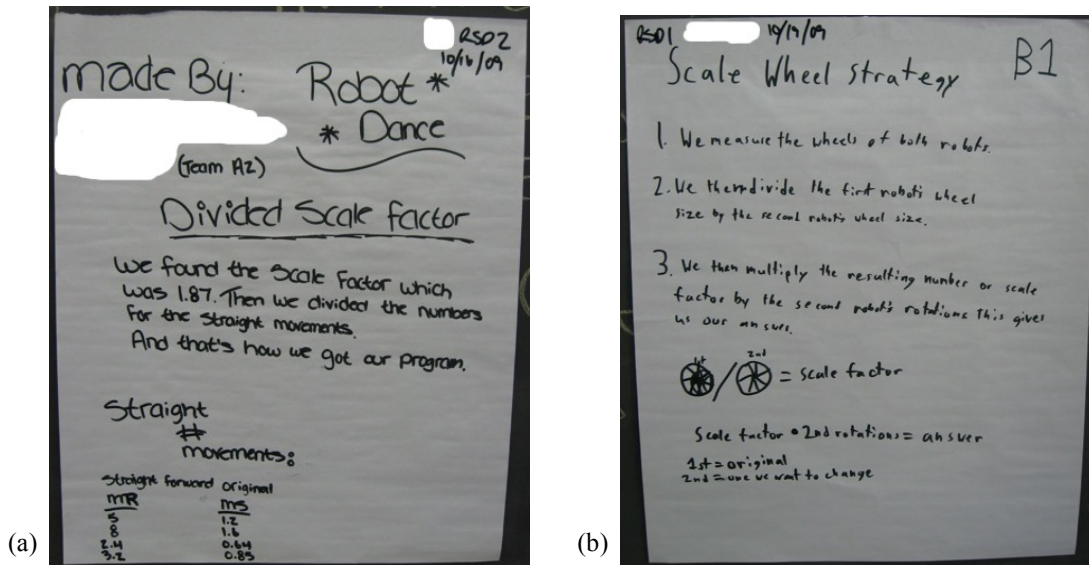 RSD2
10/16/09
made By:
Robot *
* Dance
(Team A2)
Divided Scale factor
We found the Scale Factor which
was 1.87. Then we divided the numbers
for the straight movements.
And that's how we got our program.
Straight
#
movements:
Straight forward original
MR MS
5 1.2
8 1.6
2.4 0.64
3.2 0.85
(a)
RSD1 10/19/09
Scale Wheel Strategy
B1
1. We measure the wheels of both robots.
2. We then divide the first robot's wheel
size by the second robot's wheel size.
3. We then multiply the resulting number or scale
factor by the second robot's rotations this gives
us our answer.
1st / 2nd = scale factor
Scale factor • 2nd rotations = answer
1st = original
2nd = one we want to change
(b)